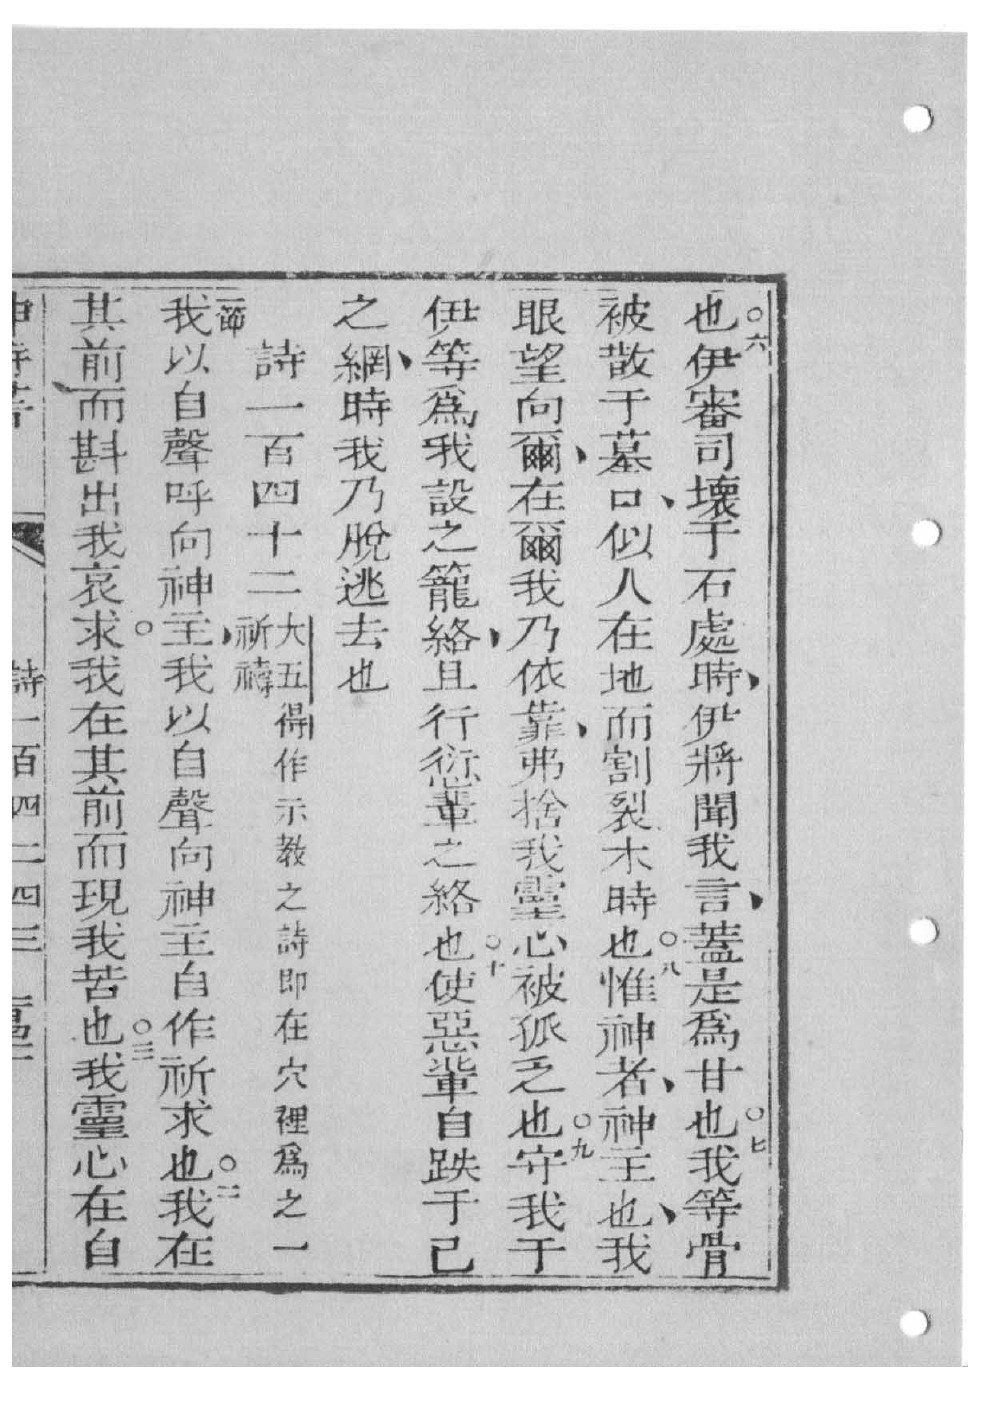 也○六伊審司壞于石處時、伊將聞我言、蓋是爲甘也○七我等骨
被散于墓口、似人在地而割裂木時也○八惟神者、神主也、我
眼望向爾、在爾我乃依靠、弗捨我靈心被孤乏也○九守我于
伊等爲我設之籠絡、且行愆輩之絡也○十使惡輩自跌于己
之網、時我乃脫逃去也
詩一百四十二 大五得作示教之詩即在穴裡爲之一
祈禱
一節
我以自聲呼向神主、我以自聲向神主自作祈求也○二我在
其前而斟出我哀求○我在其前而現我苦也○三我靈心在自
詩一百四二四三